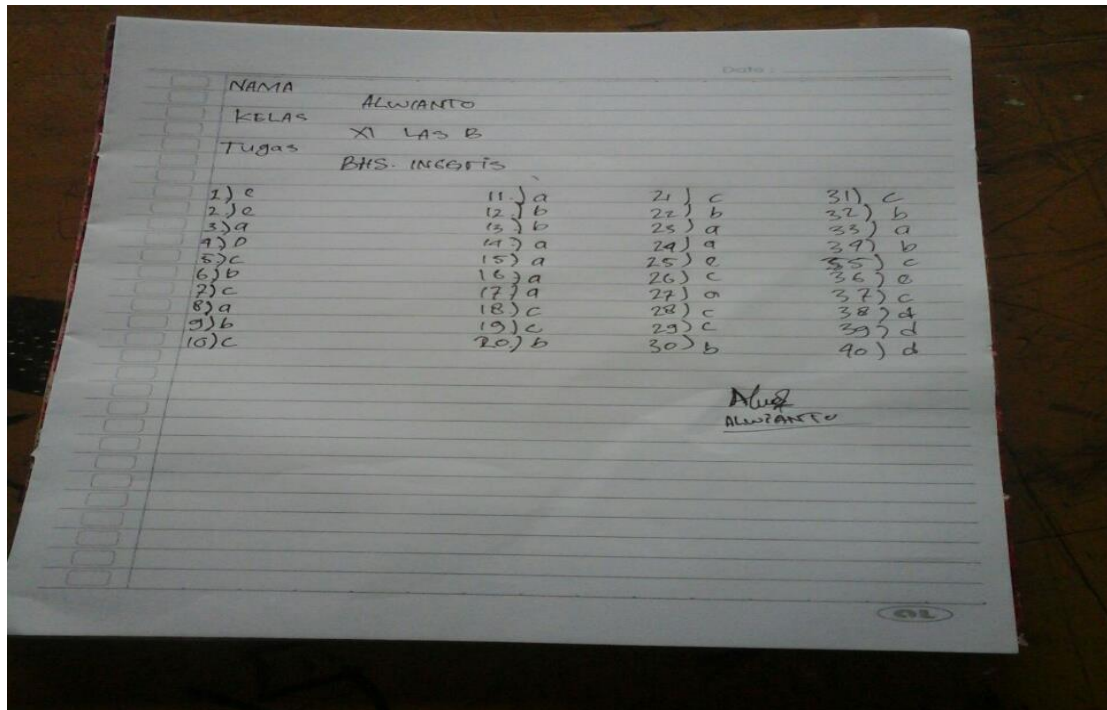 Date :
NAMA
ALWIANTO
KELAS
XI LAS B
Tugas
BHS. INGGRIS
1) e
2.) e
3) a
4) D
5) c
6) b
7) c
8) a
9) b
10) c
11.) a
12.) b
13.) b
14.) a
15) a
16) a
17) a
18) c
19) c
20.) b
21) c
22) b
23) a
24) a
25) e
26) c
27) a
28) c
29) c
30) b
31) c
32) b
33) a
34) b
35) c
36) e
37) c
38) d
39) d
40) d
ALWIANTO